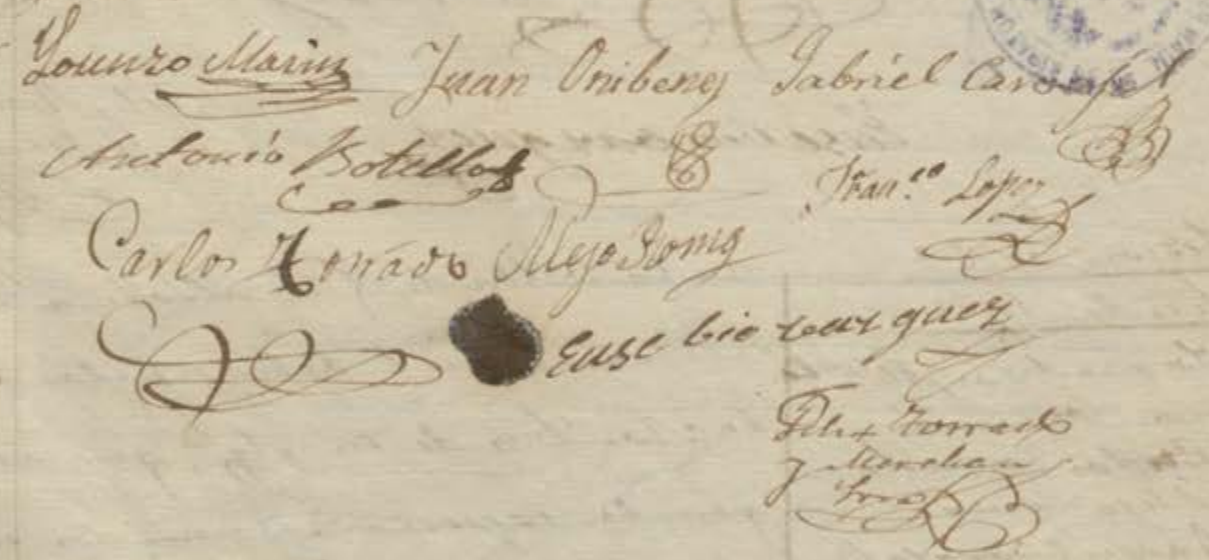 Lorenzo Marin Juan Onibenez Gabriel Carvajal
Antonio Botello
Fran.co Lopez
Carlos Torrado Alejo Romg
Eusebio vazquez
Felix Torrado
y Merchan
Srio